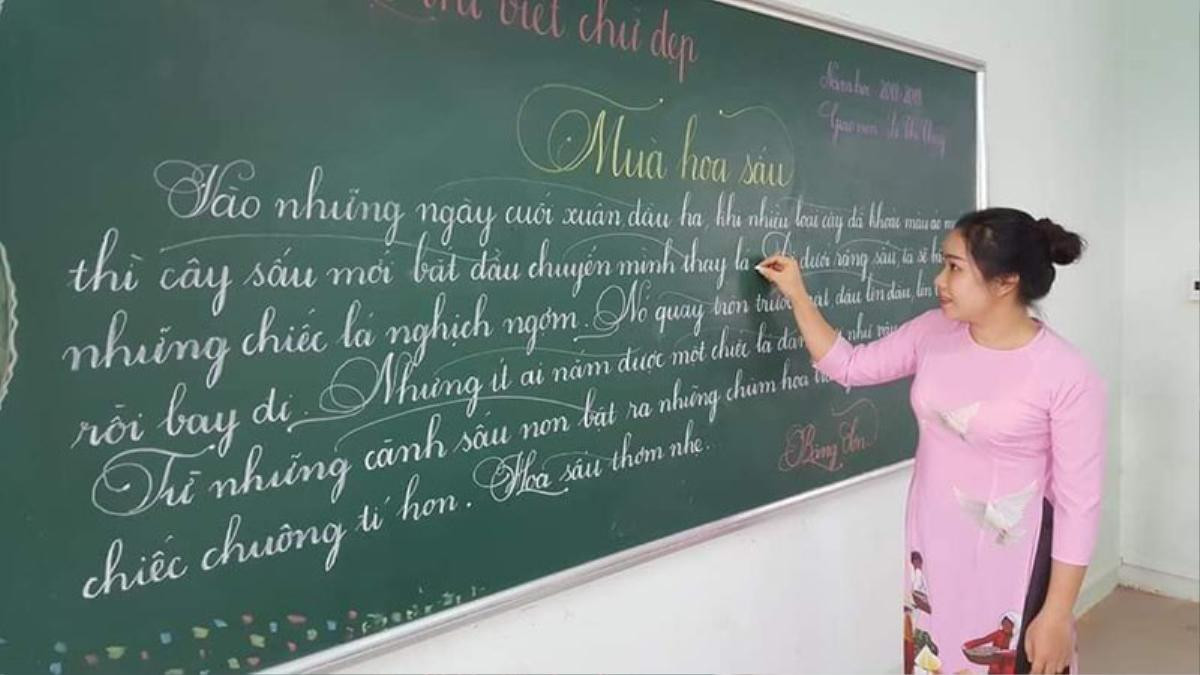 thi viết chữ đẹp
Năm học 2018-2019
Giáo viên: Lê Thị
Mùa hoa sấu
Vào những ngày cuối xuân, đầu hạ, khi nhiều loài cây đã khoác màu áo m
thì cây sấu mới bắt đầu chuyển mình thay lá dưới rặng sấu, ta sẽ
những chiếc lá nghịch ngợm. Nó quay tròn trước mặt, đậu lên đầu, lên
rồi bay đi. Nhưng ít ai nắm được một chiếc lá đan như vậy
Từ những cành sấu non bật ra những chùm hoa
chiếc chuông tí hon. Hoa sấu thơm nhẹ..
Băng Sơn